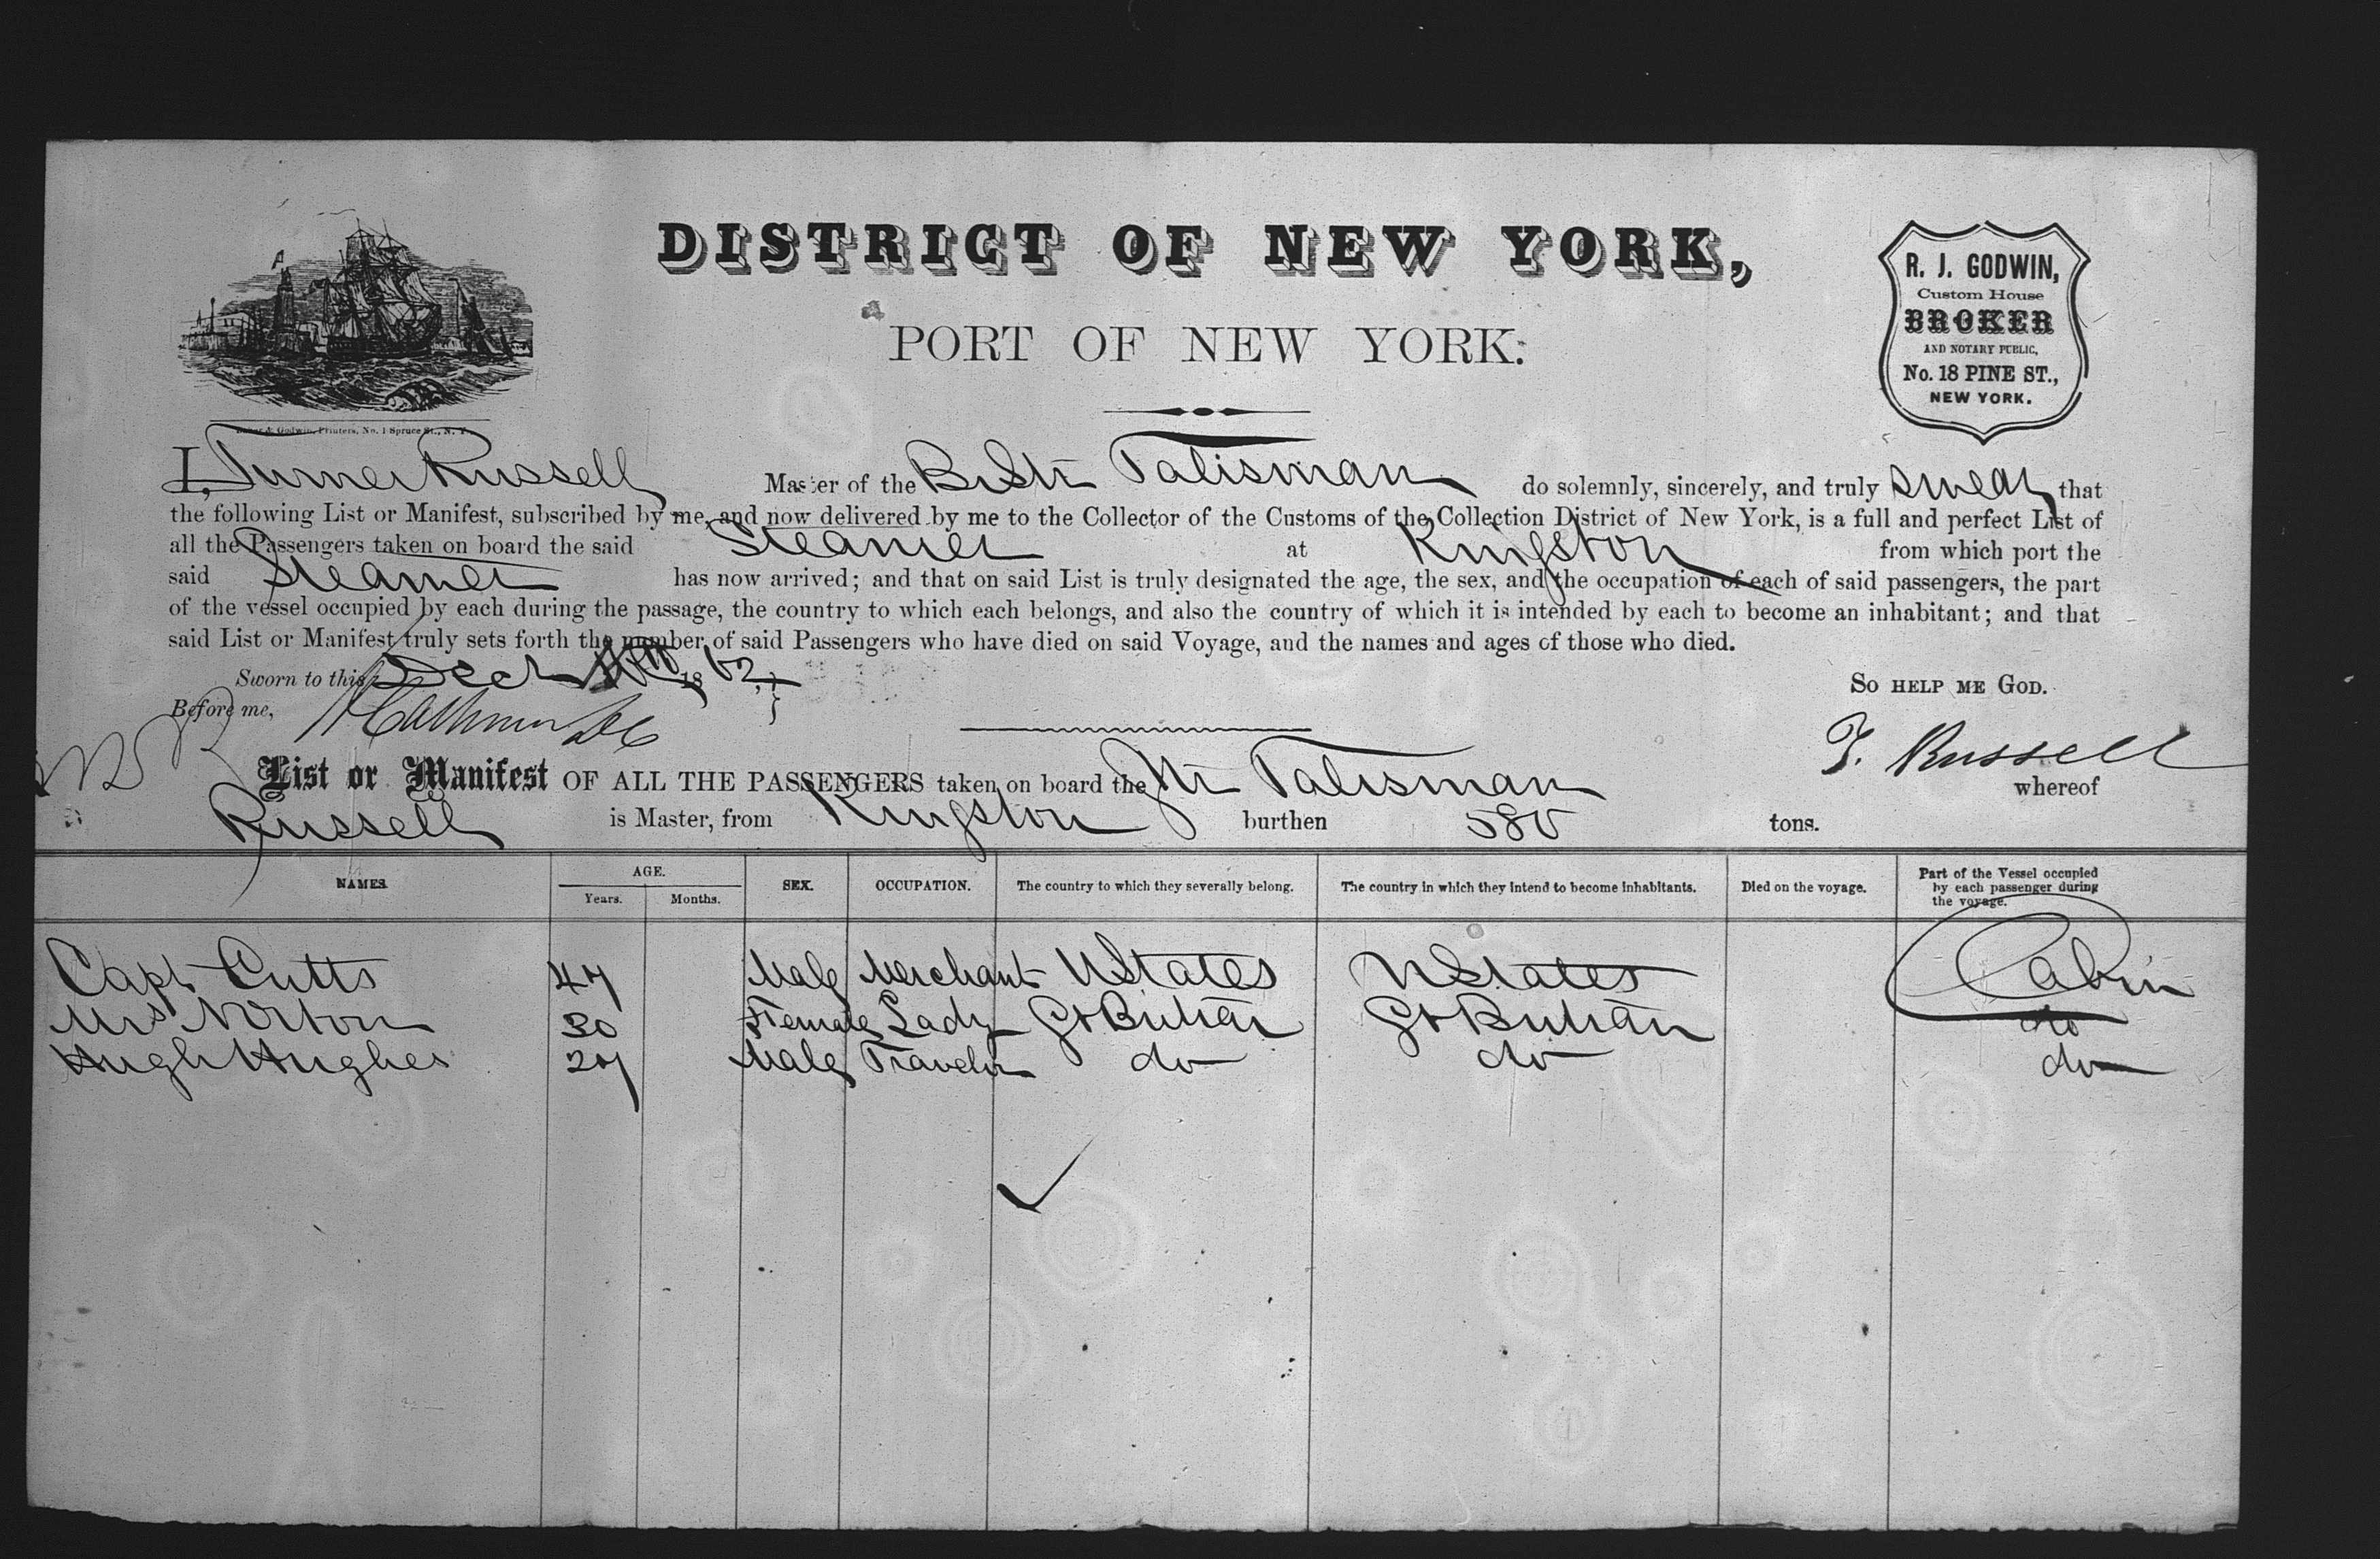 DISTRICT OF NEW YORK,
PORT OF NEW YORK:
R. J. GODWIN,
Custom House
BROKER
AND NOTARY PUBLIC,
No. 18 PINE ST.,
NEW YORK.
Baker & Godwin, Printers, No. 1 Spruce St., N. Y.
I, Turner Russell Master of the Br Str Talisman do solemnly, sincerely, and truly swear that
the following List or Manifest, subscribed by me, and now delivered by me to the Collector of the Customs of the Collection District of New York, is a full and perfect List of
all the Passengers taken on board the said Steamer at Kingston from which port the
said Steamer has now arrived; and that on said List is truly designated the age, the sex, and the occupation of each of said passengers, the part
of the vessel occupied by each during the passage, the country to which each belongs, and also the country of which it is intended by each to become an inhabitant; and that
said List or Manifest truly sets forth the number of said Passengers who have died on said Voyage, and the names and ages of those who died.
Sworn to this Decr 1862, So HELP ME GOD.
Before me, Calhoun
T. Russell
List or Manifest OF ALL THE PASSENGERS taken on board the Talisman whereof
Russell is Master, from Kingston burthen 580 tons.
NAMES. AGE. Years. Months. SEX. OCCUPATION. The country to which they severally belong. The country in which they intend to become inhabitants. Died on the voyage. Part of the Vessel occupied by each passenger during the voyage.
Capt Cutts 47 Male Merchant UStates UStates Cabin
Mrs Norton 30 Female Lady Gt Britain Gt Britain do
Hugh Hughes 27 Male Traveler do do do